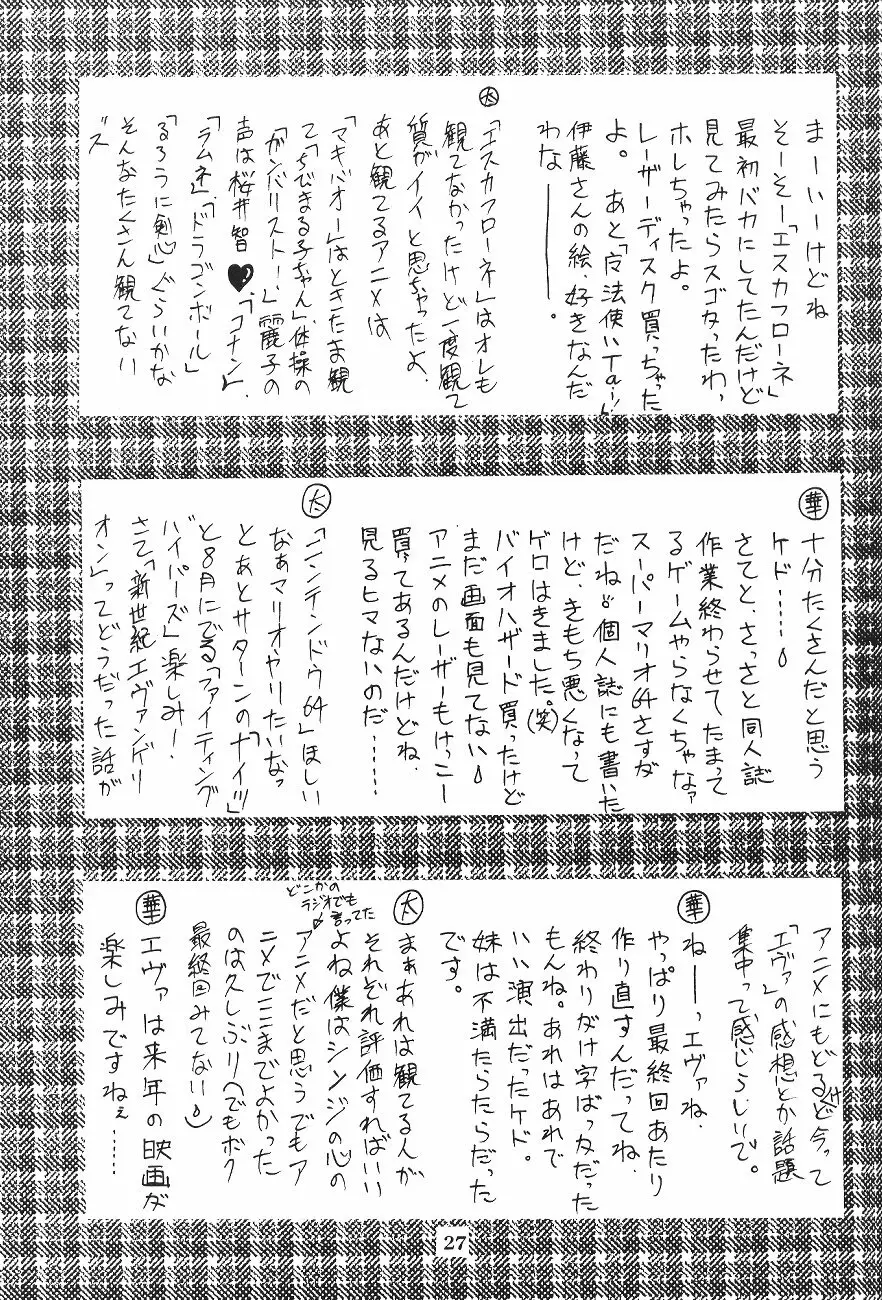 まーいーけどね
そーそー「エスカフローネ」
最初バカにしてたんだけど
見てみたらスゴかったわ,
ホレちゃったよ。
レーザーディスク買っちゃった
よ。あと「魔法使いTai!」
伊藤さんの絵、好きなんだ
わな———。
太
「エスカフローネ」はオレも
観てなかったけど一度観て
質がイイと思ちゃったよ.
あと観てるアニメは
「マキバオー」はときたま観
て「ちびまる子ちゃん」、体操の
「ガンバリスト!」麗子の
声は桜井智♥、「コナン」、
「ラムネ」、「ドラゴンボール」
「るろうに剣心」ぐらいかな
そんなたくさん観てない
ズ
華
十分たくさんだと思う
ケド……
さてと、さっさと同人誌
作業終わらせて、たまって
るゲームやらなくちゃなァ
スーパーマリオ64さすが
だね。個人誌にも書いた
けど、きもち悪くなって
ゲロはきました。(笑)
バイオハザード買ったけど
まだ画面も見てない
アニメのレーザーもけっこー
買ってあるんだけどね、
見るヒマないのだ……
太
「ニンテンドウ64」ほしい
なぁマリオやりたいなっ
とあとサターンの「ナイツ」
と8月にでる「ファイティング
バイパーズ」楽しみ!
さて「新世紀エヴァンゲリ
オン」ってどうだった話が
アニメにもどるけど今って
「エヴァ」の感想とか話題
集中って感じらしいで。
華
ねーーっエヴァね、
やっぱり最終回あたり
作り直すんだってね、
終わりがけ字ばっかだった
もんね。あれはあれで
いい演出だったケド。
妹は不満たらたらだった
です。
太
まぁあれは観てる人が
それぞれ評価すればいい
よね僕はシンジの心の
どこかの
ラジオでも
言ってた
アニメだと思うでもア
ニメでここまでよかった
のは久しぶり(でもボク
最終回みてない)
華
エヴァは来年の映画が
楽しみですねぇ……
27